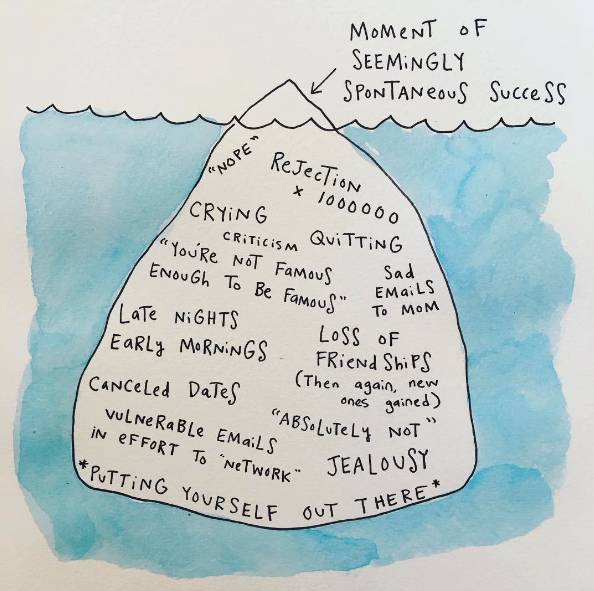 MOMENT OF
SEEMINGLY
SPONTANEOUS SUCCESS
"NOPE"
REJECTION
x 1000000
CRYING
CRITICISM QUITTING
"YOU'RE NOT FAMOUS
ENOUGH TO BE FAMOUS"
Sad
EMAILS
TO MOM
LATE NIGHTS
EARLY MORNINGS
LOSS OF
FRIENDSHIPS
(Then again, new
ones gained)
CANCELED DATES
"ABSOLUTELY NOT"
VULNERABLE EMAILS
IN EFFORT TO "NETWORK"
JEALOUSY
*PUTTING YOURSELF OUT THERE*